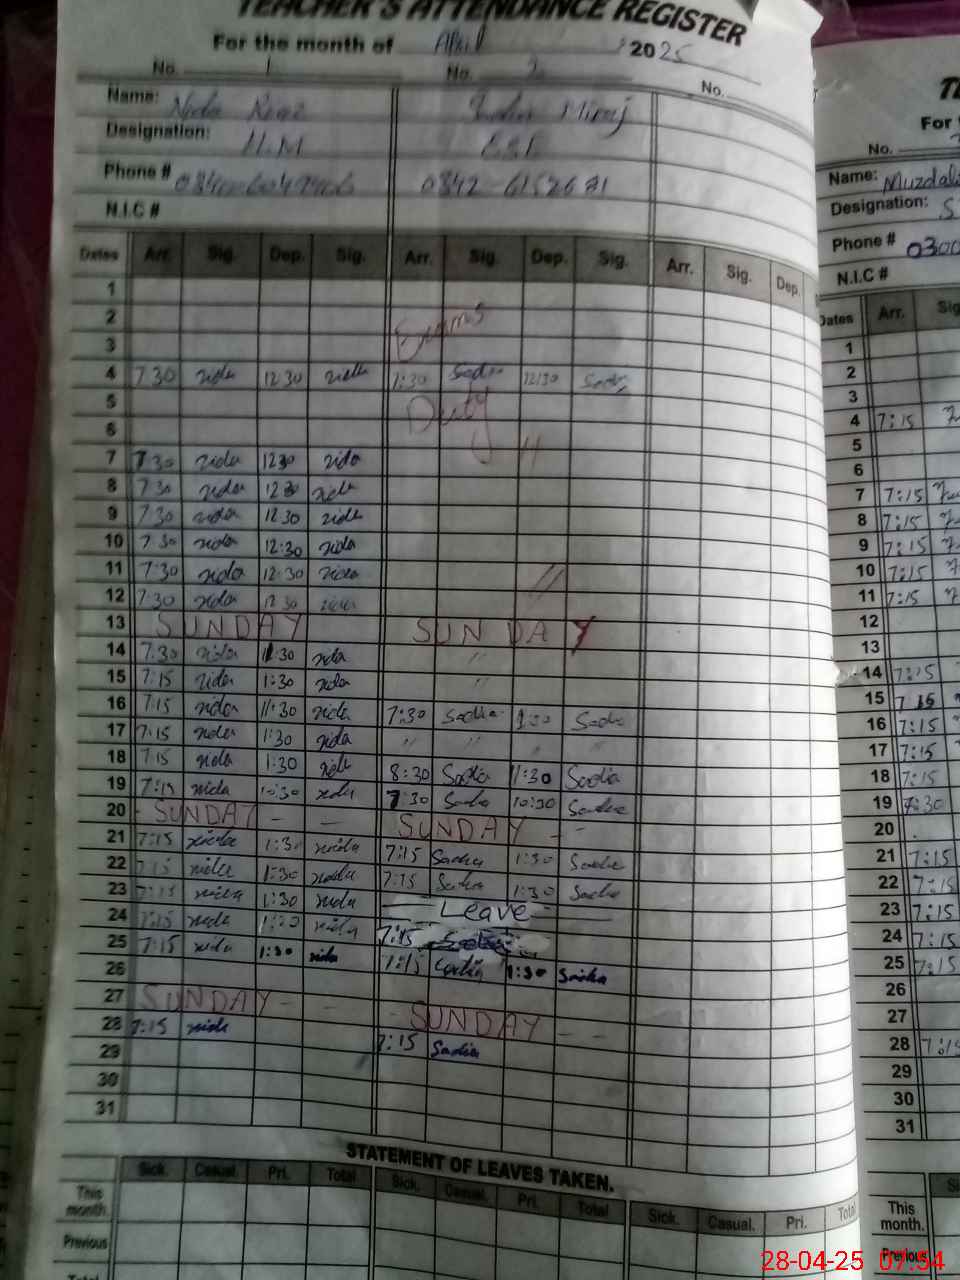 TEACHER'S ATTENDANCE REGISTER
For the month of April 2025
No. 1 No. 2 No.
Name: Nida Miraj
Designation: H.M
Phone # 0342-6152681
N.I.C #
Dates Arr. Sig. Dep. Sig. Arr. Sig. Dep. Sig. Arr. Sig. Dep.
1
2 Exams
3
4 7:30 nida 12:30 nida 7:30 Sadia 12:30 Sadia
5 Duty
6
7 7:30 nida 12:30 nida 11
8 7:30 nida 12:30 nida
9 7:30 nida 12:30 nida
10 7:30 nida 12:30 nida
11 7:30 nida 12:30 nida //
12 7:30 nida 12:30 nida
13 SUNDAY SUNDAY
14 7:30 nida 1:30 nida "
15 7:15 nida 1:30 nida "
16 7:15 nida 11:30 nida 7:30 Sadia 1:30 Sadia
17 7:15 nida 1:30 nida " " " "
18 7:15 nida 1:30 nida 8:30 Sadia 11:30 Sadia
19 7:15 nida 10:30 nida 7:30 Sadia 10:30 Sadia
20 - SUNDAY - - SUNDAY - -
21 7:15 nida 1:30 nida 7:15 Sadia 1:30 Sadia
22 7:15 nida 1:30 nida 7:15 Sadia 1:30 Sadia
23 7:15 nida 1:30 nida Leave
24 7:15 nida 1:30 nida 7:15
25 7:15 nida 1:30 nida 7:15 Sadia 1:30 Sadia
26
27 SUNDAY - - SUNDAY - -
28 7:15 nida 7:15 Sadia
29
30
31
STATEMENT OF LEAVES TAKEN.
Sick. Casual. Pri. Total Sick. Casual. Pri. Total Sick. Casual. Pri. Total
This month.
Previous
Total
For
No.
Name:
Designation: S
Phone # 0300
N.I.C #
Dates Arr. Sig
1
2
3
4 7:15
5
6
7 7:15
8 7:15
9 7:15
10 7:15
11 7:15
12
13
14 7:15
15 7:15
16 7:15
17 7:15
18 7:15
19 7:30
20
21 7:15
22 7:15
23 7:15
24 7:15
25 7:15
26
27
28 7:15
29
30
31
This month.
Previous
28-04-25 07:54